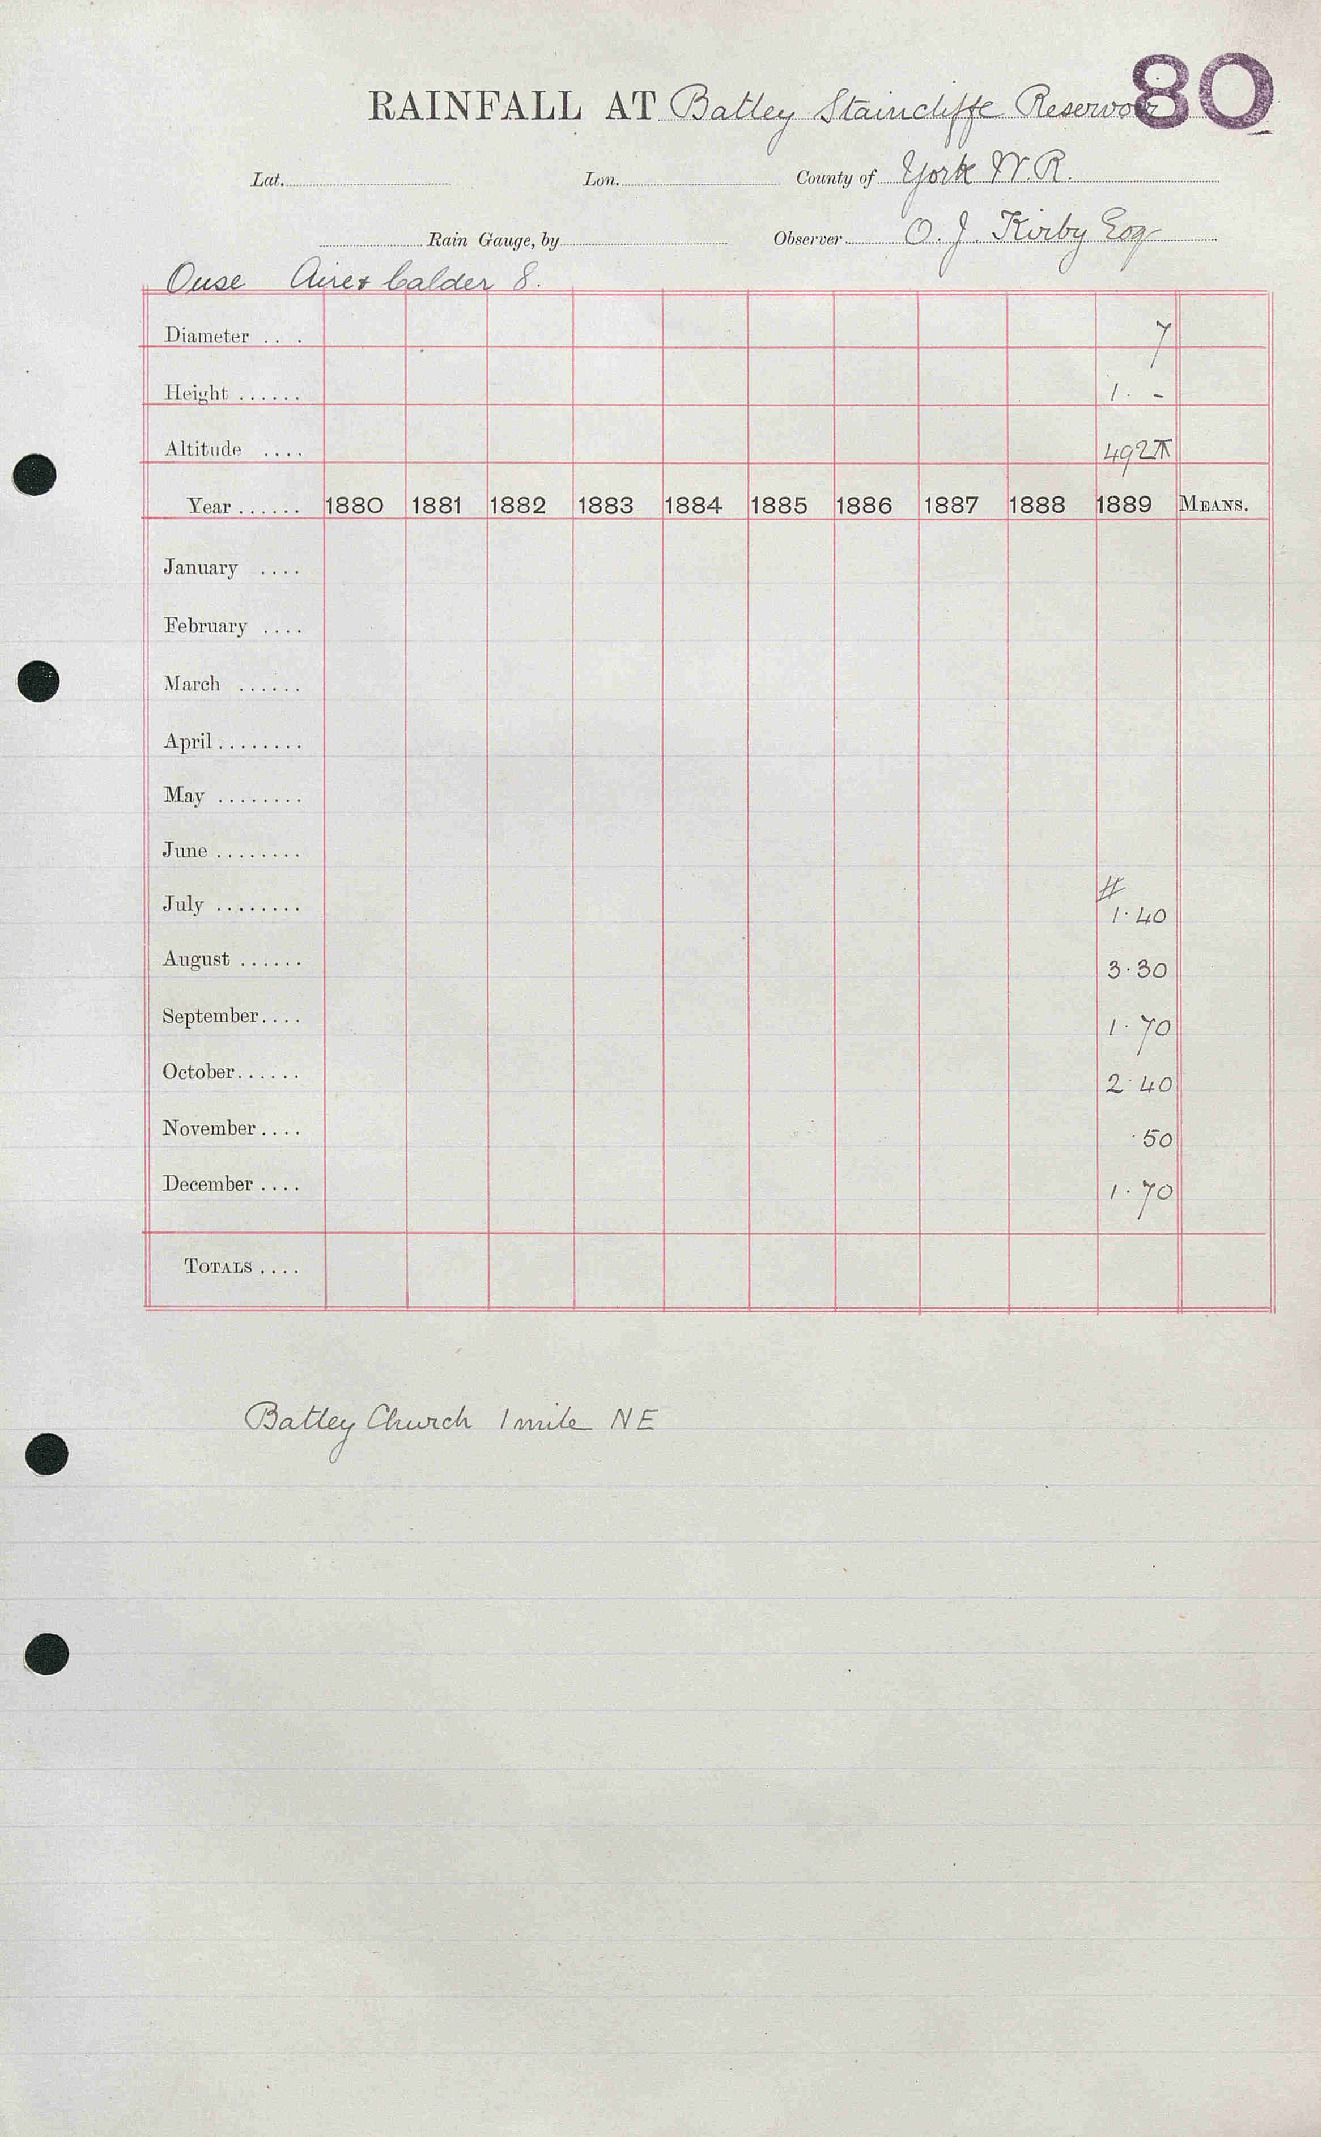 80
RAINFALL AT Batley Staincliffe Reservoir
Lat. Lon. County of York W.R.
Rain Gauge, by Observer O. J. Kirby Esq
Ouse Aire & Calder 8.
Diameter .... 7
Height ...... 1. -
Altitude .... 492
Year ...... 1880 1881 1882 1883 1884 1885 1886 1887 1888 1889 MEANS.
January ....
February ....
March ......
April ........
May ........
June ........
#
July ........ 1.40
August ...... 3.30
September.... 1.70
October...... 2.40
November.... .50
December .... 1.70
TOTALS ....
Batley Church 1 mile NE